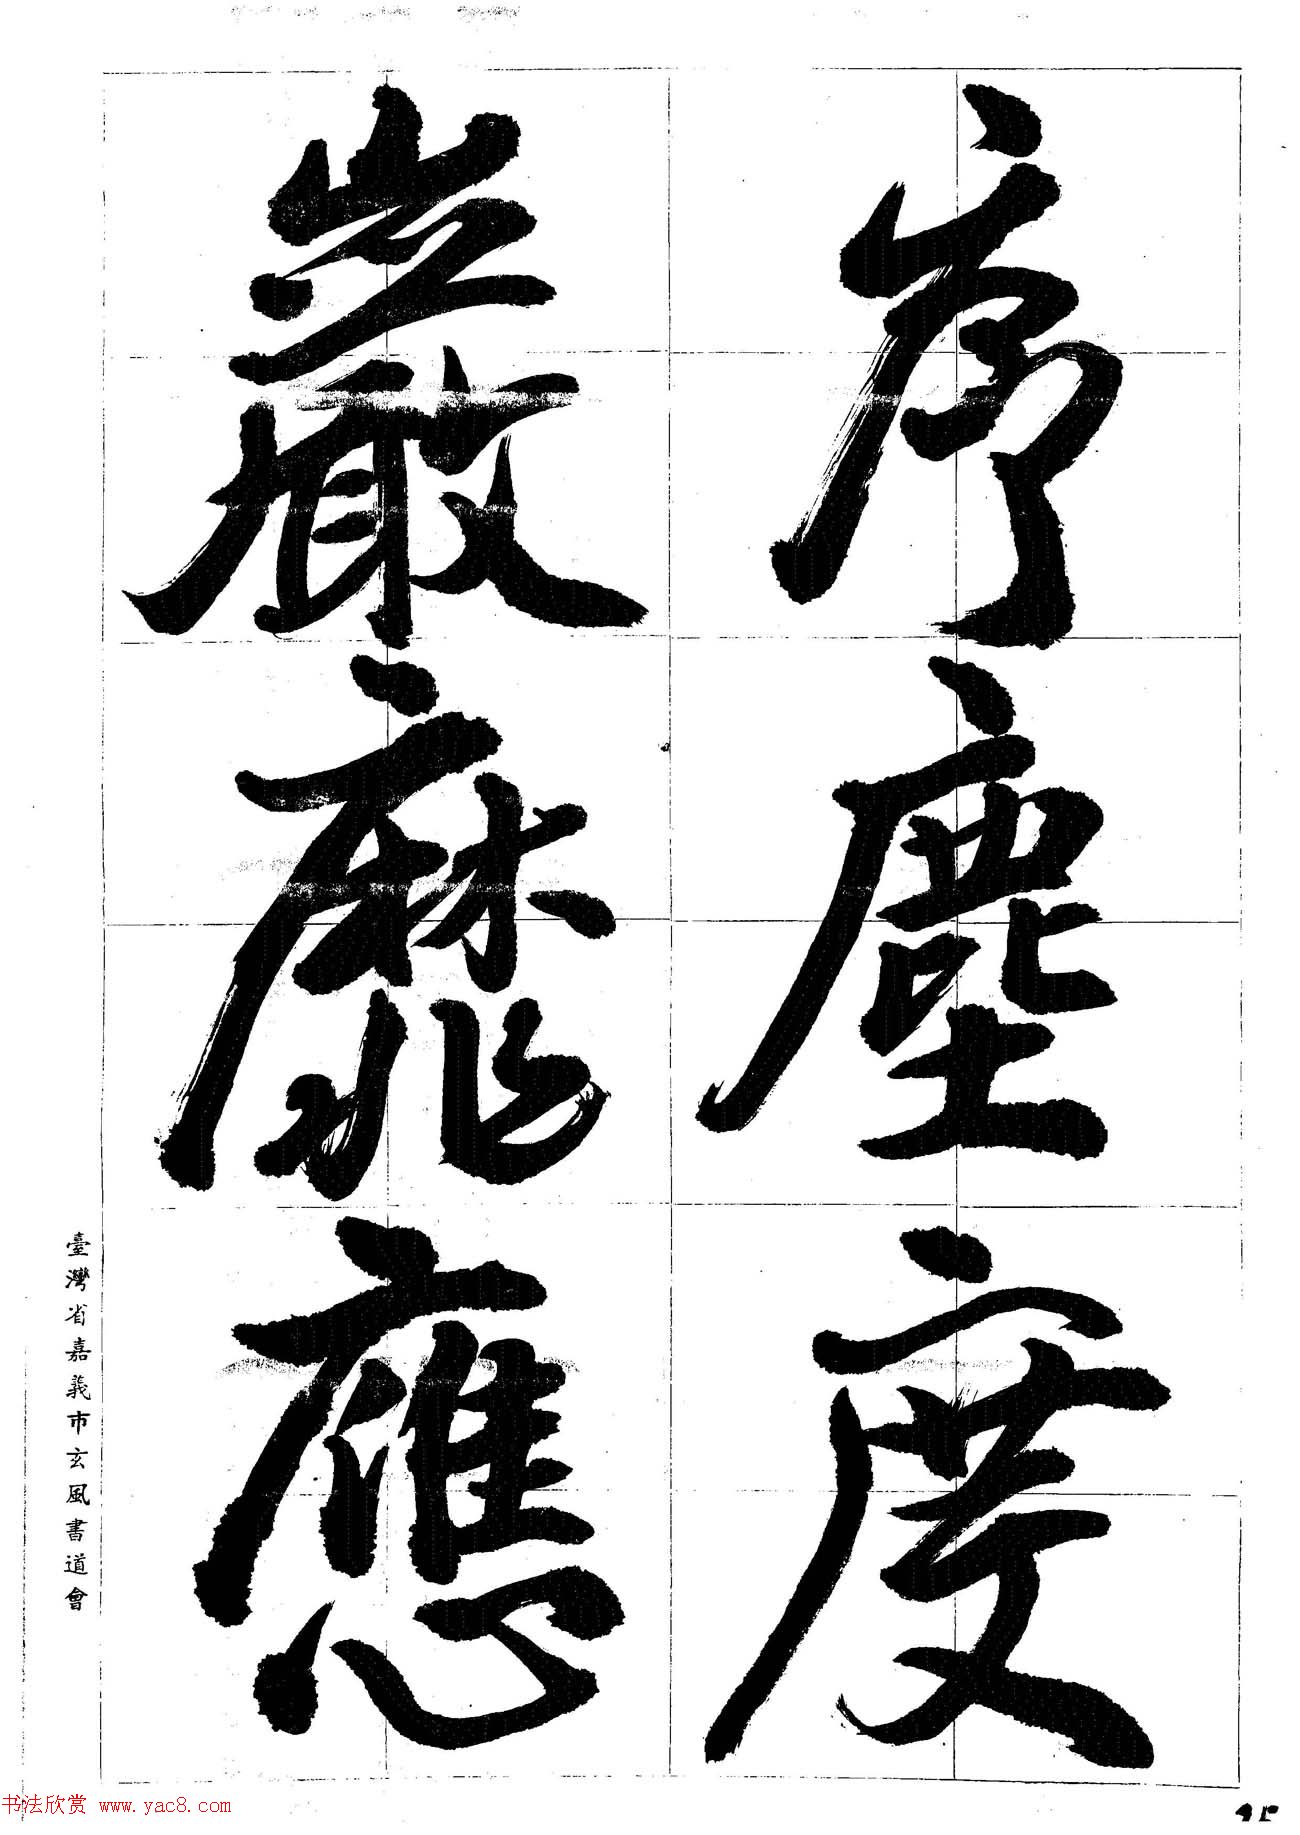 序塵度
巖靡應
臺灣省嘉義市玄風書道會
书法欣赏 www.yac8.com